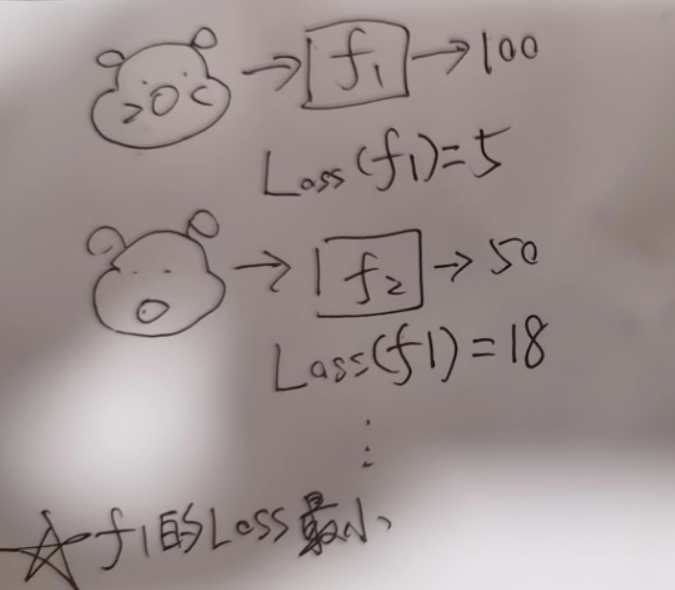 → f1 → 100
Loss(f1)=5
→ f2 → 50
Loss(f1)=18
⋮
☆ f1的Loss最小